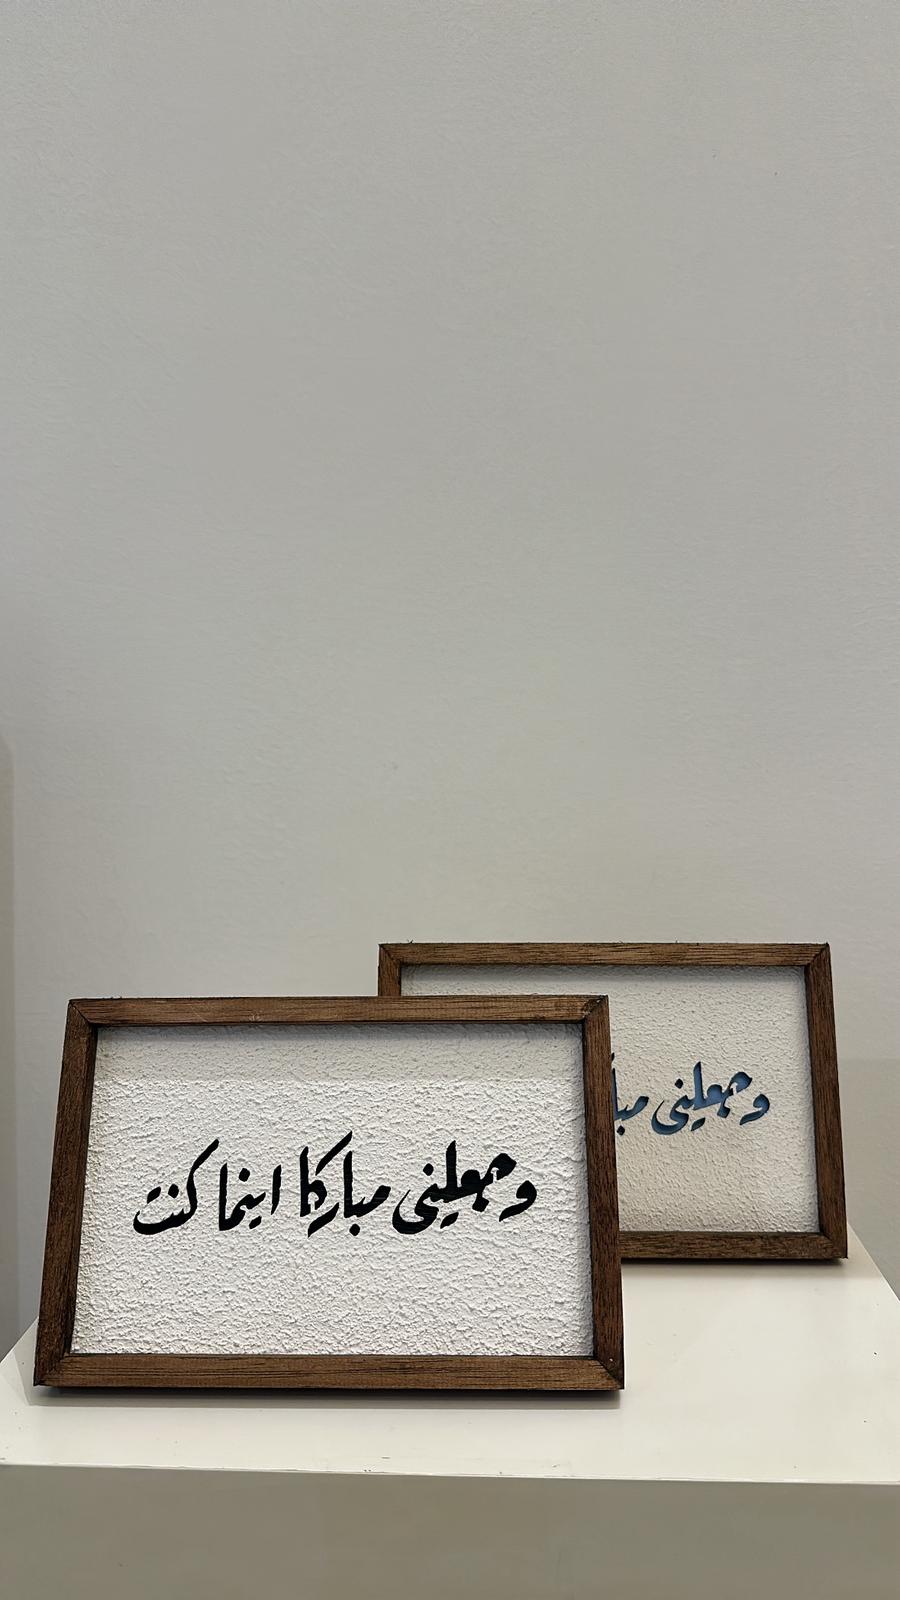 وجعلني مباركا اينما كنت
وجعلني